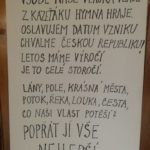 VŠUDE NAŠE VLAJKA VLAJE
Z KAZEŤÁKU HYMNA HRAJE.
OSLAVUJEM DATUM VZNIKU
CHVALME ČESKOU REPUBLIKU!
LETOS MÁME VÝROČÍ
JE TO CELÉ STOROČÍ.
LÁNY, POLE, KRÁSNÁ MĚSTA,
POTOK, ŘEKA, LOUKA, CESTA,
CO NAŠI VLAST POTĚŠÍ?
POPŘÁT JÍ VŠE
NEJLEPŠÍ